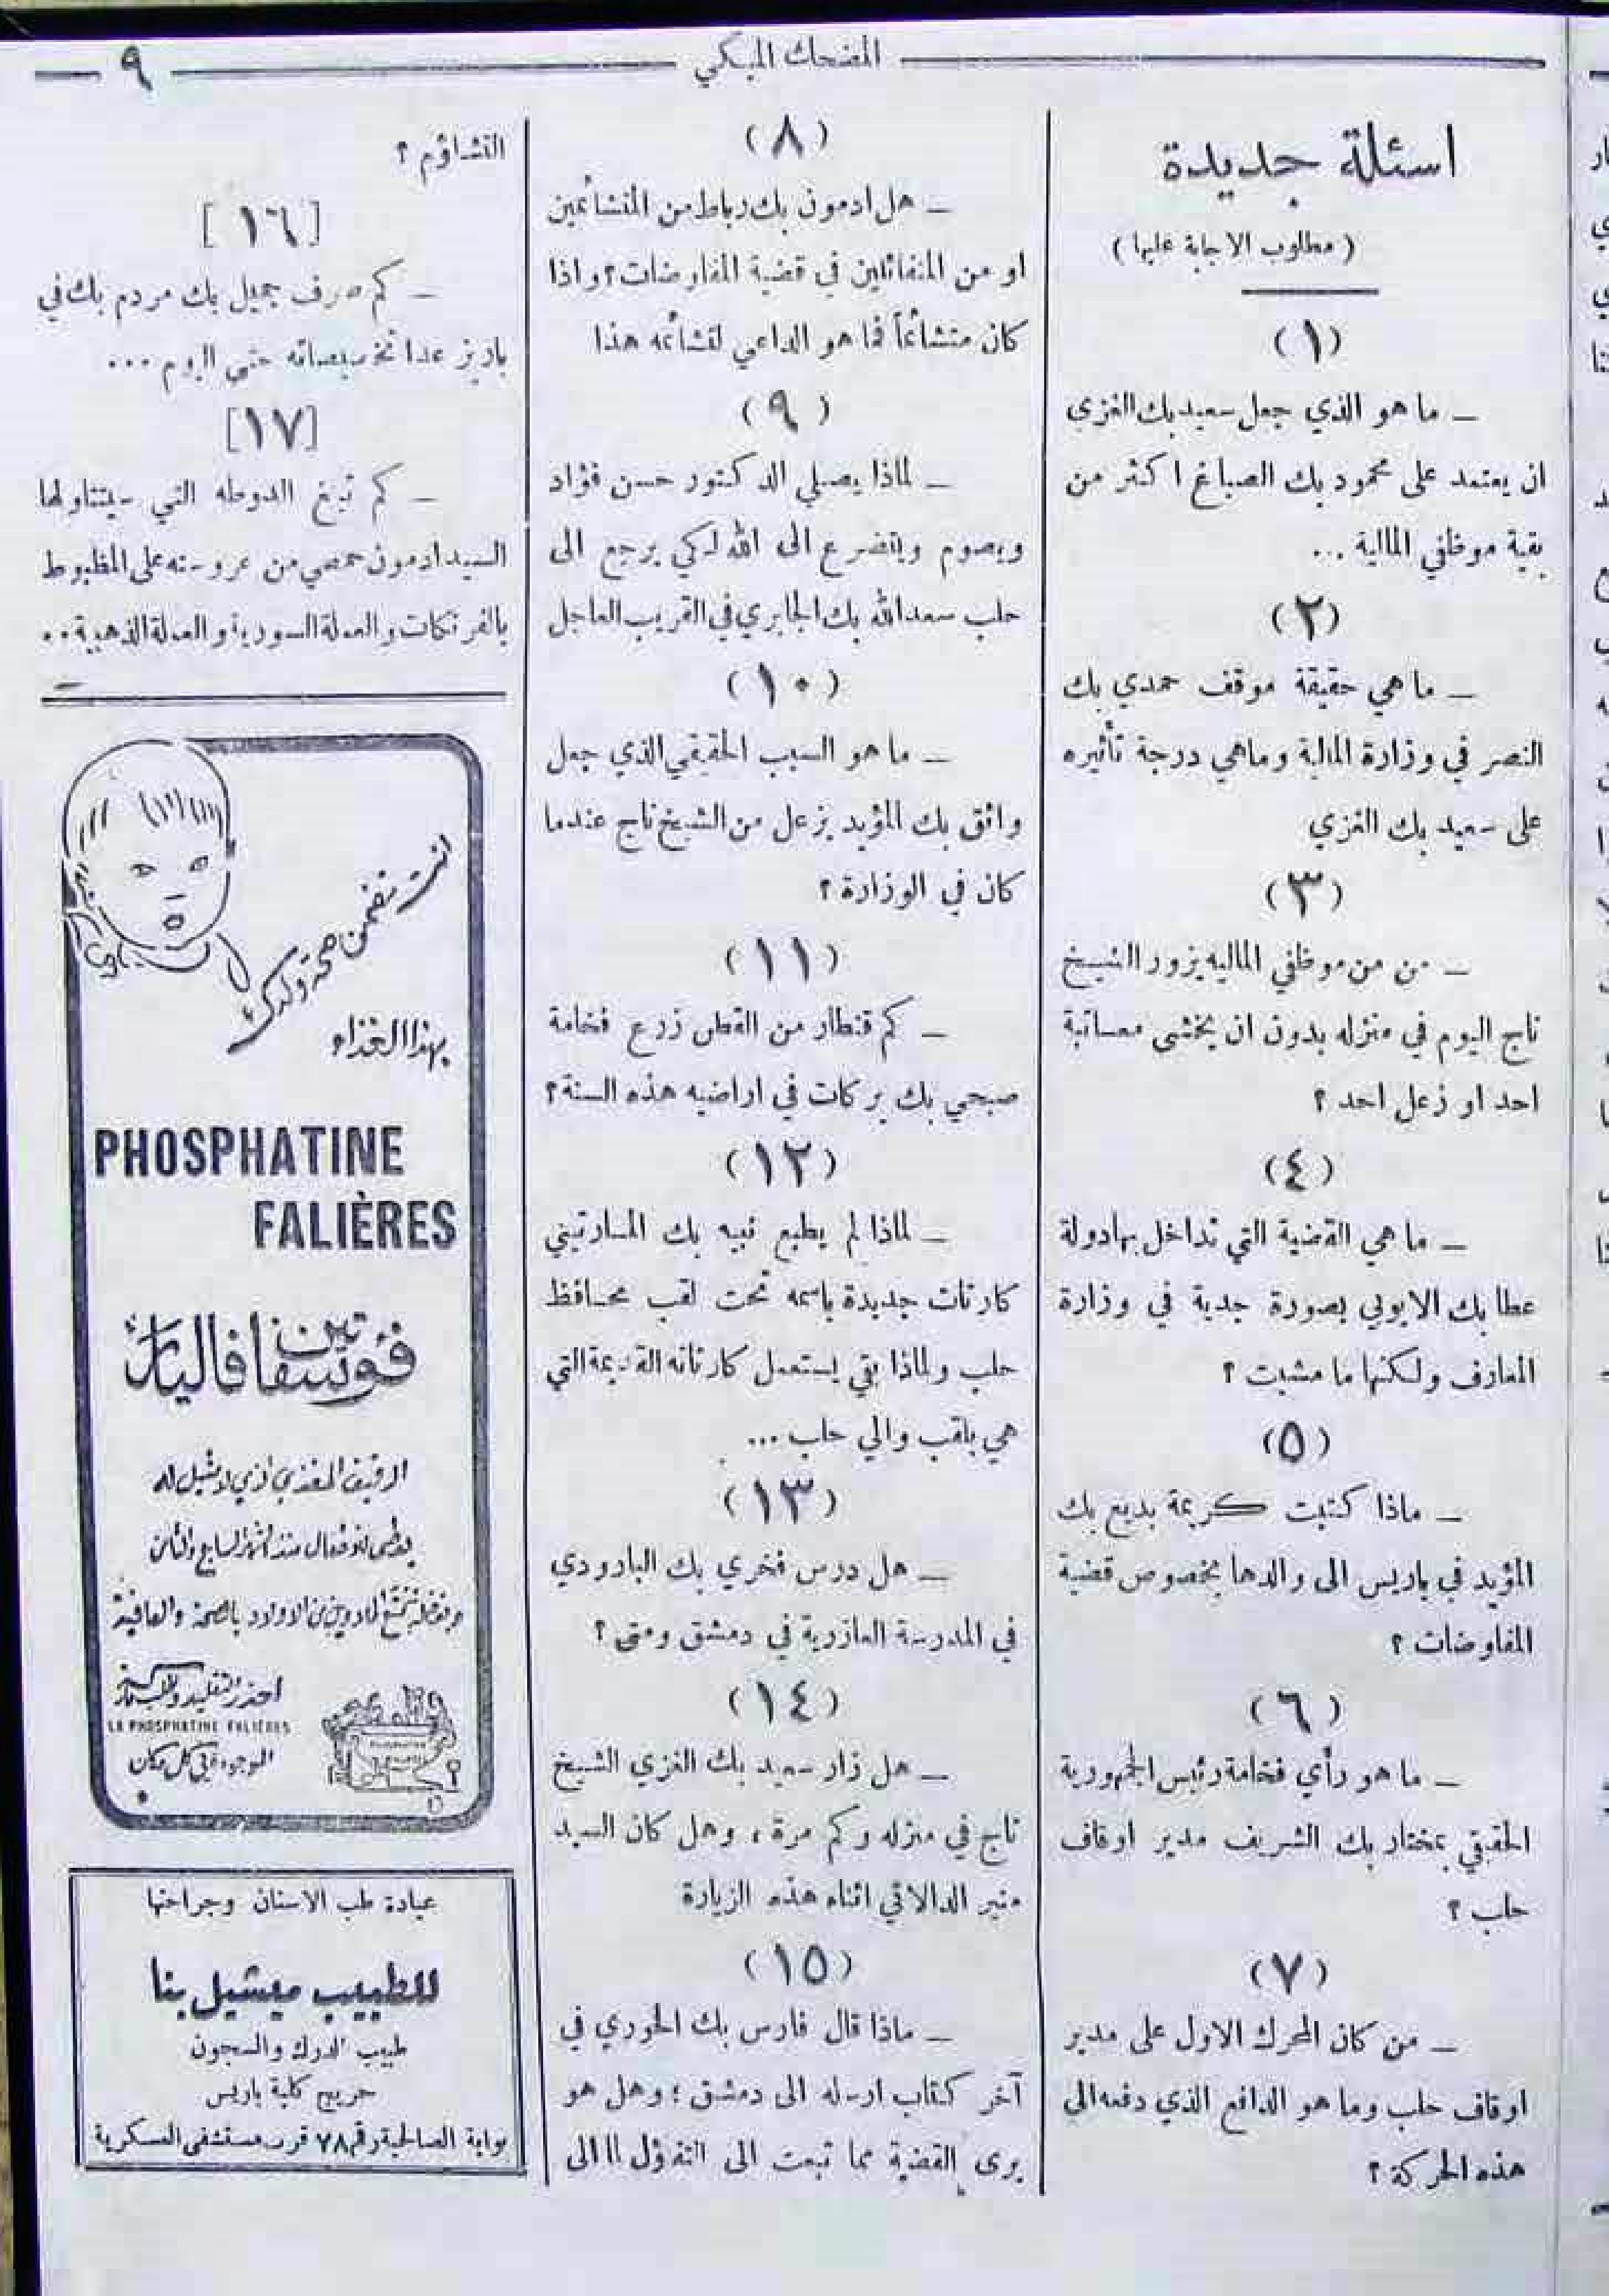 المضحك المبكي
٩
اسئلة جديدة
( مطلوب الاجابة عليها )
(١)
ـ ما هو الذي جعل سعيد بك الغزي
ان يعتمد على محمود بك الصباغ اكثر من
بقية موظفي المالية ...
(٢)
ـ ما هي حقيقة موقف حمدي بك
النصر في وزارة المالية وماهي درجة تأثيره
على سعيد بك الغزي
(٣)
ـ من من موظفي الماليه يزور الشيخ
تاج اليوم في منزله بدون ان يخشى معاتبة
احد او زعل احد ؟
(٤)
ـ ما هي القضية التي تداخل بها دولة
عطا بك الايوبي بصورة جدية في وزارة
المعارف ولكنها ما مشيت ؟
(٥)
ـ ماذا كتبت كريمة بديع بك
المؤيد في باريس الى والدها بخصوص قضية
المفاوضات ؟
(٦)
ـ ما هو رأي فخامة رئيس الجمهورية
الحقيقي بمختار بك الشريف مدير اوقاف
حلب ؟
(٧)
ـ من كان المحرك الاول على مدير
اوقاف حلب وما هو الدافع الذي دفعه الى
هذه الحركة ؟
(٨)
ـ هل ادمون بك رباط من المتشائمين
او من المتفائلين في قضية المفاوضات ؟ واذا
كان متشائماً فما هو الداعي لتشائمه هذا
(٩)
ـ لماذا يصلي الدكتور حسن فؤاد
ويصوم ويتضرع الى الله لكي يرجع الى
حلب سعد الله بك الجابري في القريب العاجل
(١٠)
ـ ما هو السبب الحقيقي الذي جعل
واثق بك المؤيد يزعل من الشيخ تاج عندما
كان في الوزارة ؟
(١١)
ـ كم قنطار من القطن زرع فخامة
صبحي بك بركات في اراضيه هذه السنة ؟
(١٢)
ـ لماذا لم يطبع نبيه بك المارتيني
كارتات جديدة باسمه تحت لقب محافظ
حلب ولماذا بقي يستعمل كارتاته القديمة التي
هي بلقب والي حلب ...
(١٣)
ـ هل درس فخري بك البارودي
في المدرسة العازرية في دمشق ومتى ؟
(١٤)
ـ هل زار سعيد بك الغزي الشيخ
تاج في منزله وكم مرة ، وهل كان السيد
منير الدالاتي اثناء هذه الزيارة
(١٥)
ـ ماذا قال فارس بك الخوري في
آخر كتاب ارسله الى دمشق ؛ وهل هو
يرى القضية مما تبعت الى التفؤل ام الى
التشاؤم ؟
[١٦]
ـ كم صرف جميل بك مردم بك في
باريز عدا تخصيصاته حتى اليوم ...
[١٧]
ـ كم تبلغ الدوطه التي سيتناولها
السيد ادمون حمصي من عروسته على المظبوط
بالفرنكات والعملة السورية والعملة الذهبية ..
انت تضمن صحة ولدك
بهذا الغذاء
PHOSPHATINE
FALIÈRES
فوسفاتين فاليار
الدقيق المغذي الذي لا مثيل له
يعطى للاطفال منذ الشهر السابع والثامن
وبفضله يتمتع الاولاد بالصحة والعافية
احذر التقليد
LA PHOSPHATINE FALIÈRES
الموجودة في كل مكان
عيادة طب الاسنان وجراحتها
للطبيب ميشيل بنا
طبيب الدرك والسجون
خريج كلية باريس
بوابة الصالحية رقم ٧٨ قرب مستشفى العسكرية